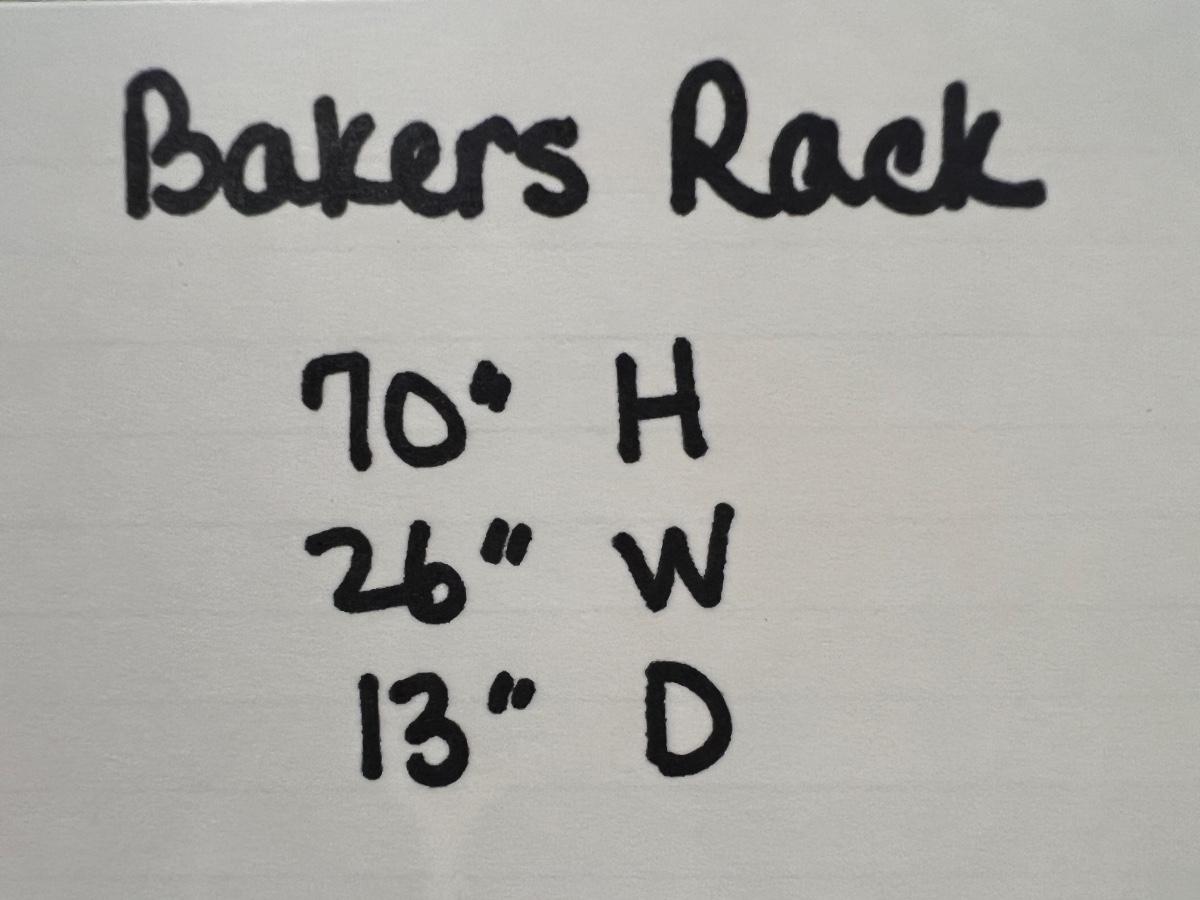 Bakers Rack
70" H
26" W
13" D